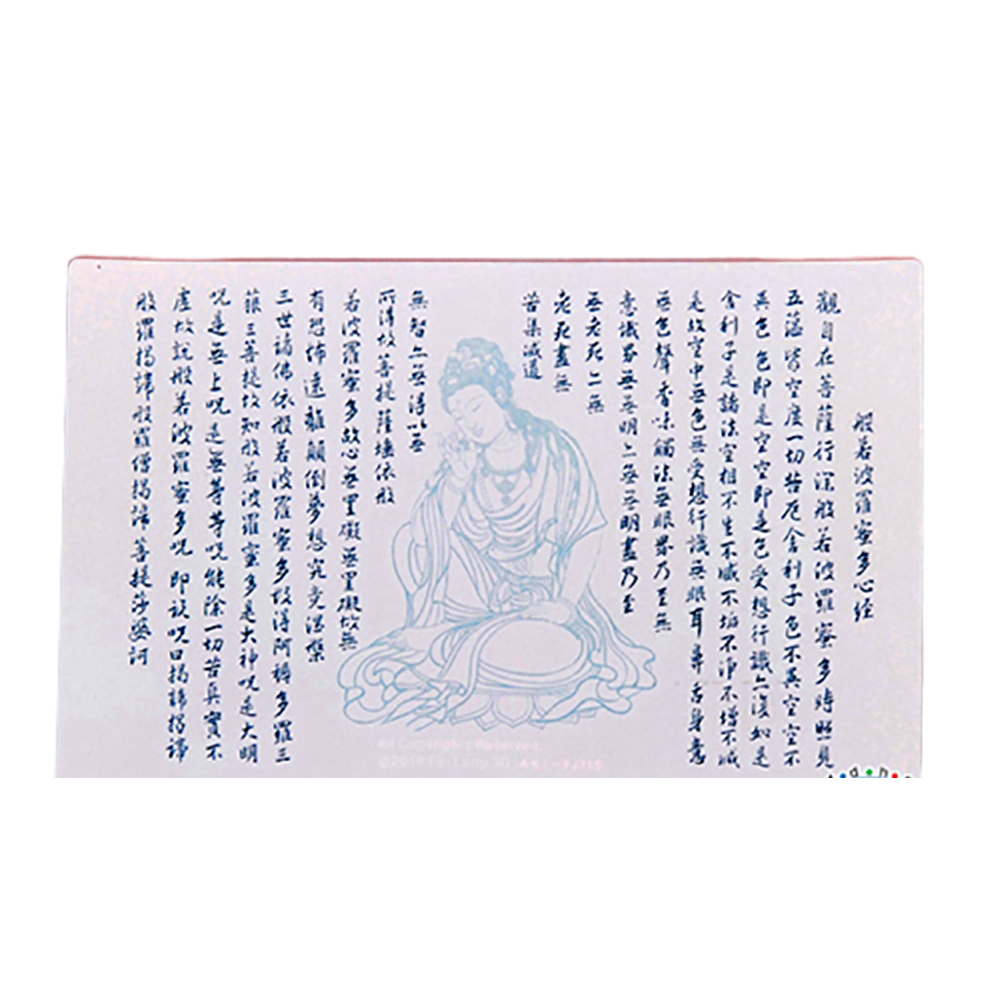 般若波羅蜜多心經
觀自在菩薩行深般若波羅蜜多時照見
五蘊皆空度一切苦厄舍利子色不異空空不
異色色即是空空即是色受想行識亦復如是
舍利子是諸法空相不生不滅不垢不淨不增不減
是故空中無色無受想行識無眼耳鼻舌身意
無色聲香味觸法無眼界乃至無
意識界無無明亦無無明盡乃至
無老死亦無
老死盡無
苦集滅道
無智亦無得以無
所得故菩提薩埵依般
若波羅蜜多故心無罣礙無罣礙故無
有恐怖遠離顛倒夢想究竟涅槃
三世諸佛依般若波羅蜜多故得阿耨多羅三
藐三菩提故知般若波羅蜜多是大神呪是大明
呪是無上呪是無等等呪能除一切苦真實不
虛故說般若波羅蜜多呪即說呪曰揭諦揭諦
般羅揭諦般羅僧揭諦菩提莎婆訶
All Copyrights Reserved.